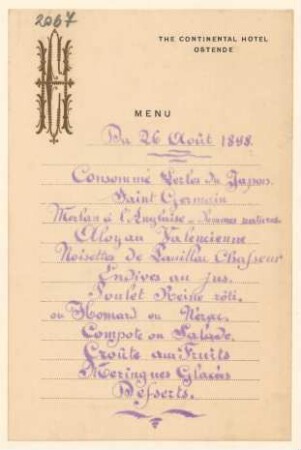 2067
THE CONTINENTAL HOTEL
OSTENDE
MENU
Du 26 Août 1898.
Consommé Perles du Japon.
Saint Germain
Merlan à l'Anglaise - Pommes natures.
Aloyau Valencienne
Noisettes de Pauillac Chasseur
Endives au jus.
Poulet Reine rôti.
ou Homard ou Nérac.
Compote ou Salade.
Croûte aux Fruits
Meringues Glacées
Desserts.